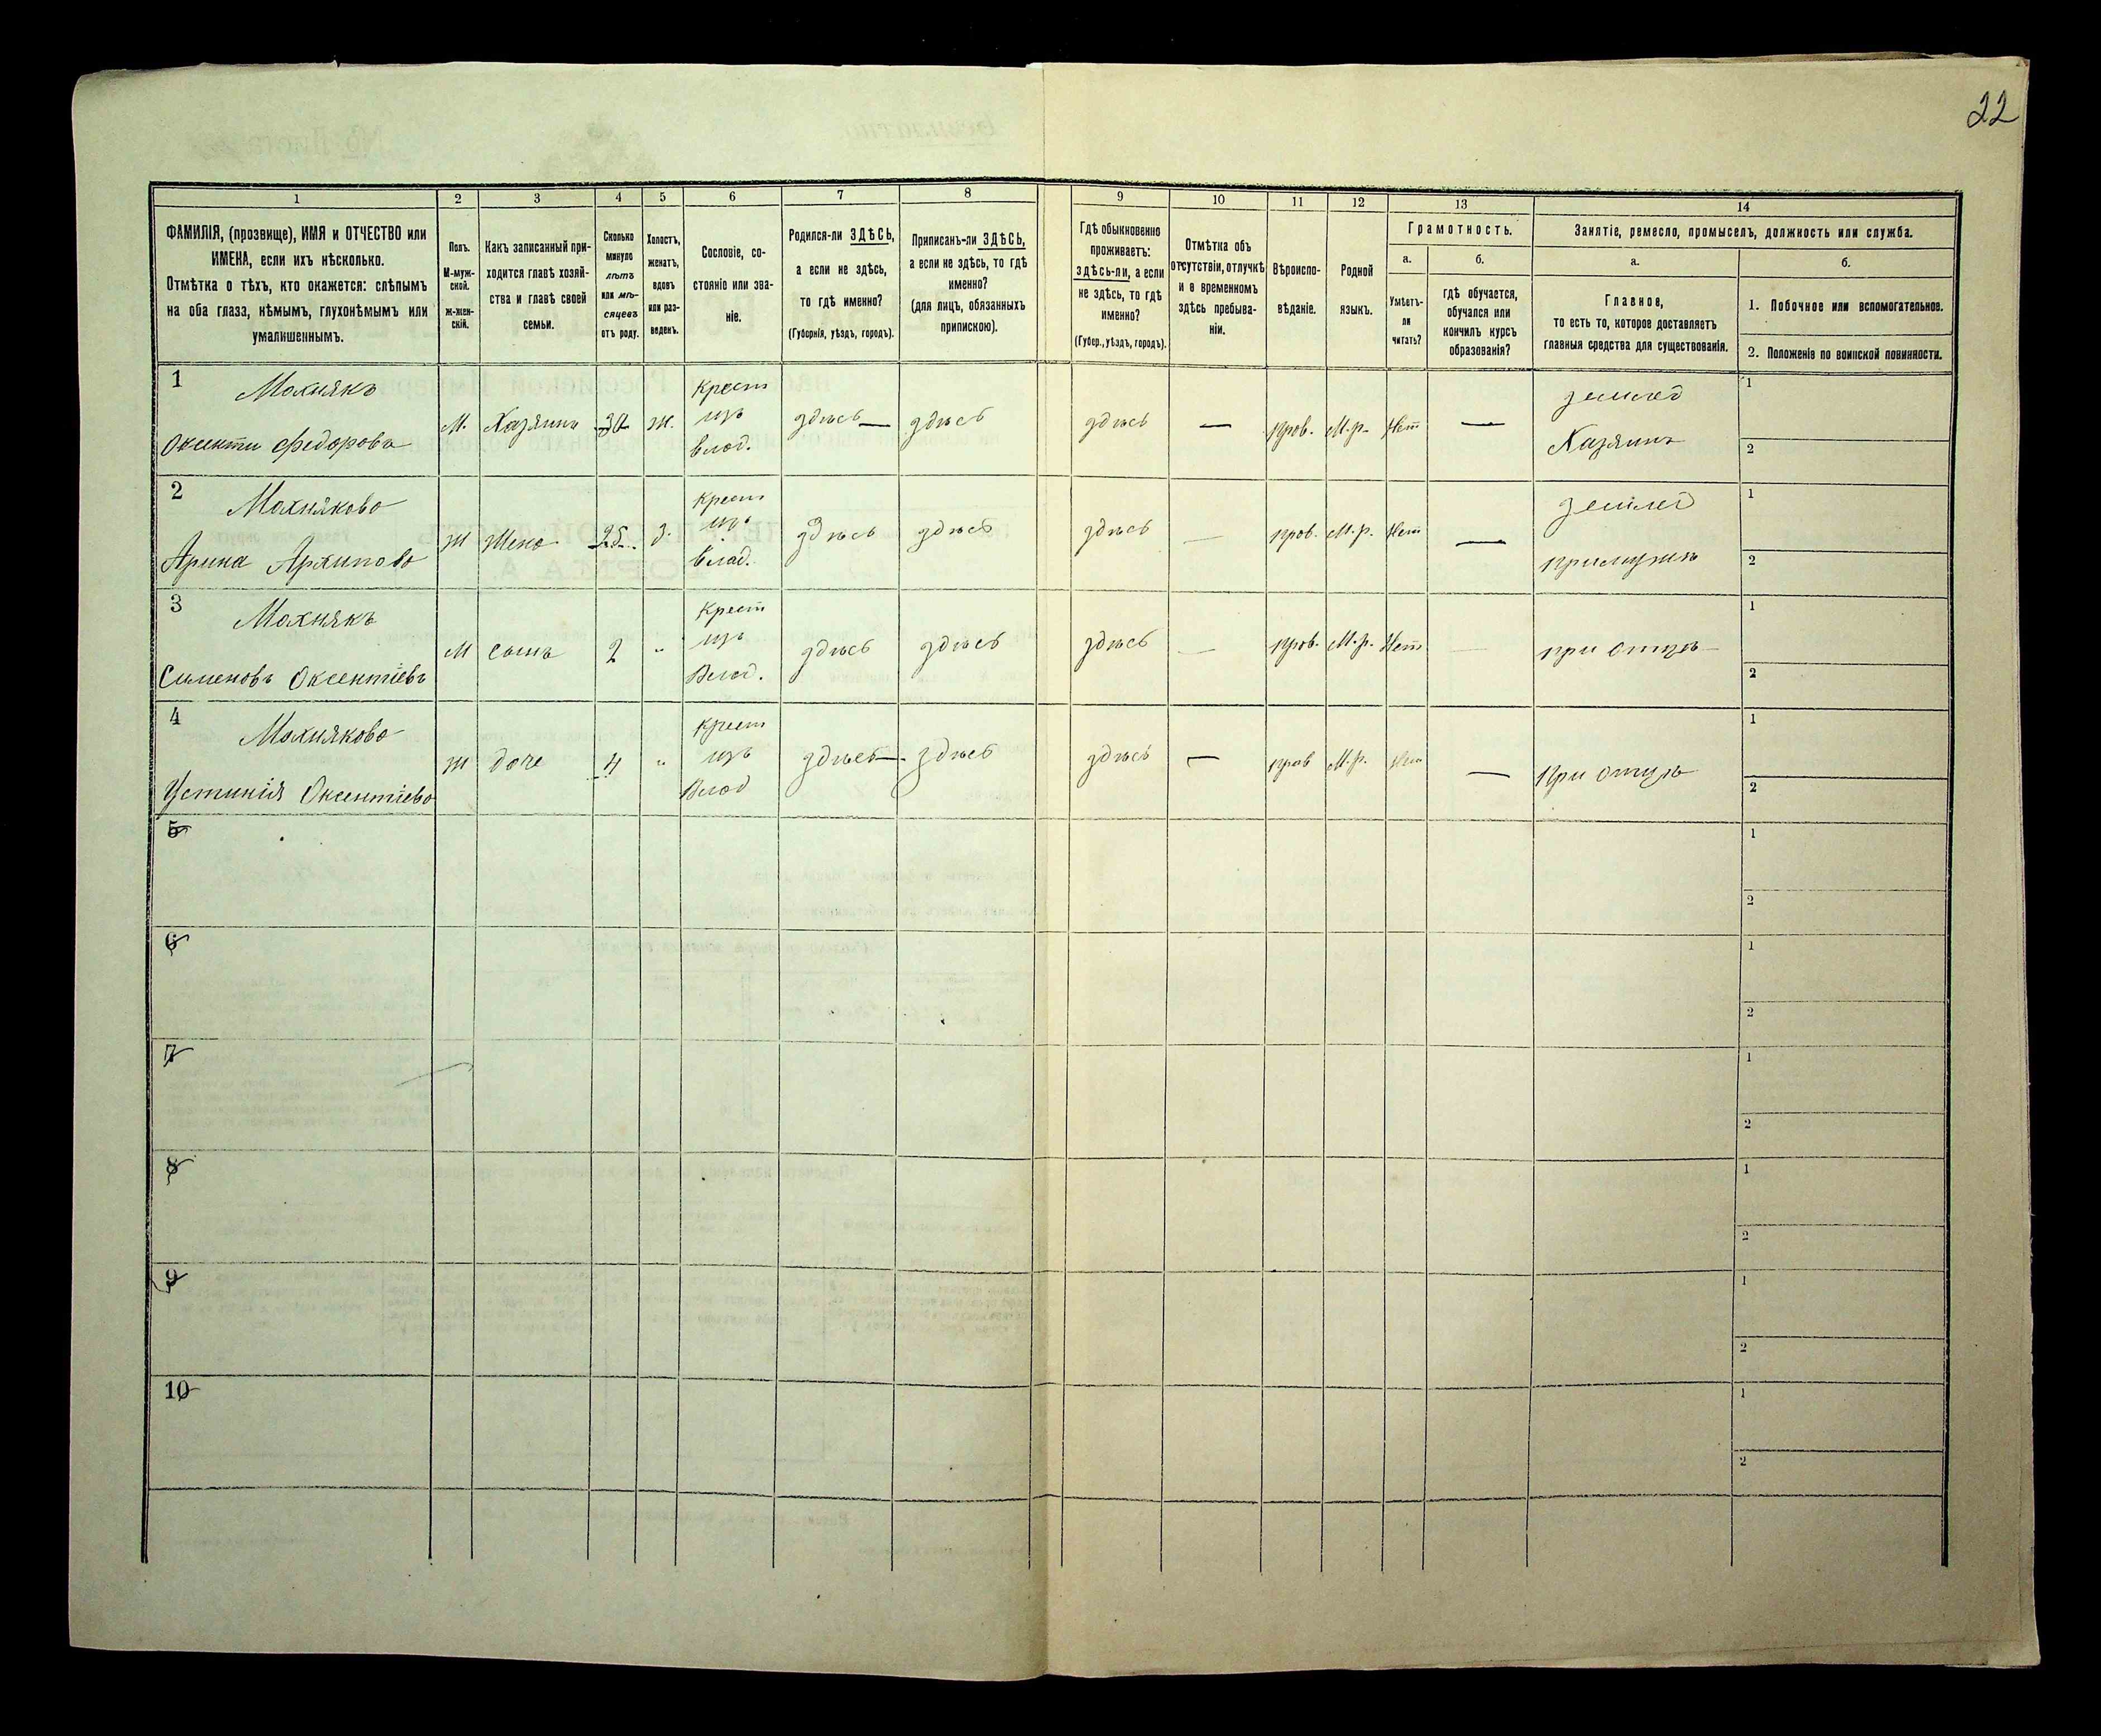 22
1 2 3 4 5 6 7 8 9 10 11 12 13 14
ФАМИЛІЯ, (прозвище), ИМЯ и ОТЧЕСТВО или
ИМЕНА, если ихъ нѣсколько.
Отмѣтка о тѣхъ, кто окажется: слѣпымъ
на оба глаза, нѣмымъ, глухонѣмымъ или
умалишеннымъ.
Полъ.
М-муж-
ской.
Ж-жен-
скій.
Какъ записанный при-
ходится главѣ хозяй-
ства и главѣ своей
семьи.
Сколько
минуло
лѣтъ
или мѣ-
сяцевъ
отъ роду.
Холостъ,
женатъ,
вдовъ
или раз-
веденъ.
Сословіе, со-
стояніе или зва-
ніе.
Родился-ли ЗДѢСЬ,
а если не здѣсь,
то гдѣ именно?
(Губернія, уѣздъ, городъ).
Приписанъ-ли ЗДѢСЬ,
а если не здѣсь, то гдѣ
именно?
(для лицъ, обязанныхъ
припискою).
Гдѣ обыкновенно
проживаетъ:
здѣсь-ли, а если
не здѣсь, то гдѣ
именно?
(Губер., уѣздъ, городъ).
Отмѣтка объ
отсутствіи, отлучкѣ
и о временномъ
здѣсь пребыва-
ніи.
Вѣроиспо-
вѣданіе.
Родной
языкъ.
Грамотность.
а.
Умѣетъ-
ли
читать?
б.
гдѣ обучается,
обучался или
кончилъ курсъ
образованія?
Занятіе, ремесло, промыселъ, должность или служба.
а.
Главное,
то есть то, которое доставляетъ
главныя средства для существованія.
б.
1. Побочное или вспомогательное.
2. Положеніе по воинской повинности.
1 Махнякъ Крест землед 1
Оксенти Федорова М. Хазяинъ 30 ж. изъ здѣсь — здѣсь здѣсь — прав. М.р. Нет — Хазяинъ
влад. 2
2 Махнякова Крест землед 1
Арина Архипова Ж Жена 25 з. изъ здѣсь здѣсь здѣсь — прав. М.р. Нет — примужѣ
влад. 2
3 Махнякъ Крест 1
Сименовъ Оксентіевъ М сынъ 2 " изъ здѣсь здѣсь здѣсь — прав. М.р. Нет — при отцѣ
Влад. 2
4 Махнякова Крест 1
Устинія Оксентіева Ж доче 4 " изъ здѣсь — здѣсь здѣсь — прав М.р. Нет — при отцѣ
Влад 2
5 1
2
6 1
2
7 1
2
8 1
2
9 1
2
10 1
2